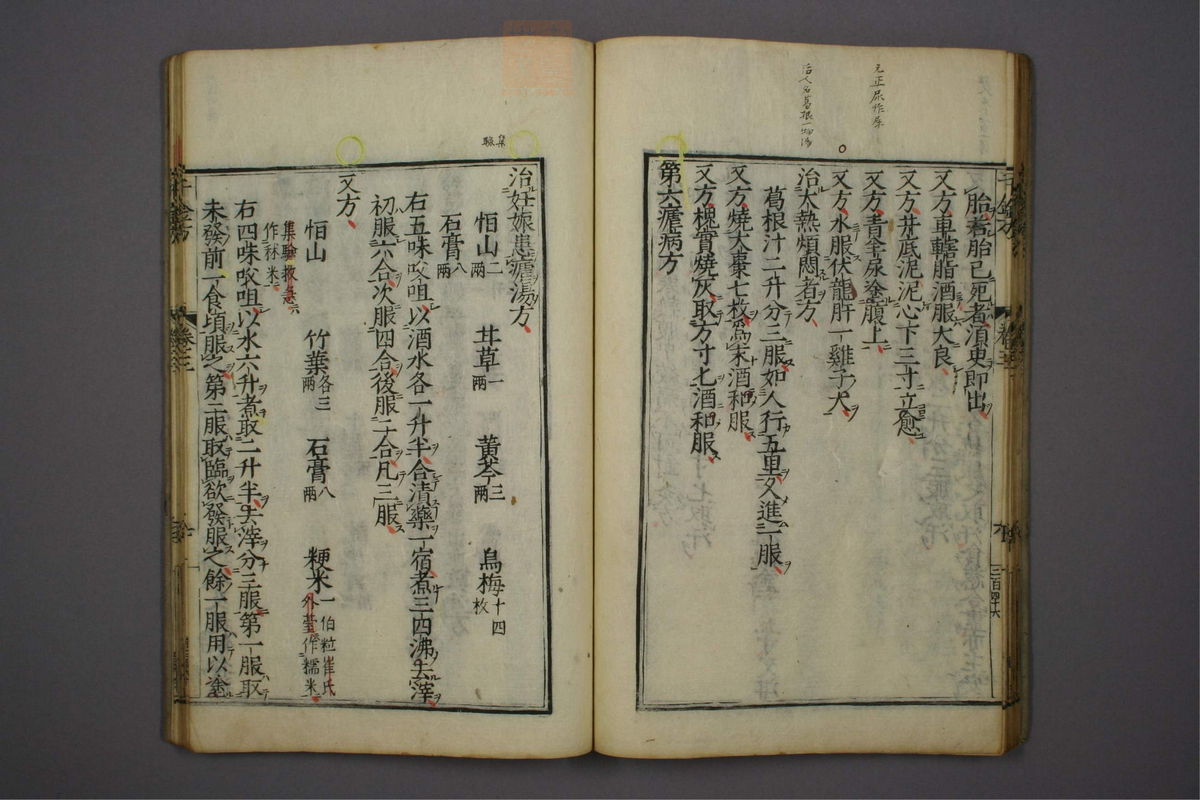 元正尿作屎
胎若胎已死者湏臾即出
又方車轄脂酒服大良
又方井底泥泥心下三寸立愈
又方青牛尿塗腹上
又方水服伏龍肝一雞子大
治大熱煩悶者方
葛根汁二升分三服如人行五里又進一服
又方燒大棗七枚爲末酒和服
又方槐實燒灰取方寸匕酒和服
第六瘧病方
三百四十六
治妊娠患瘧湯方
恒山二兩 甘草一兩 黄芩三兩 烏梅十四枚
石膏八兩
右五味㕮咀以酒水各一升半合漬藥一宿煮三四沸去滓
初服六合次服四合後服二合凡三服
又方
恒山 竹葉各三兩 石膏八兩 粳米一伯粒崔氏外臺作糯米
集驗救急作秫米
右四味㕮咀以水六升煮取二升半去滓分三服第一服取
未發前一食頃服之第二服取臨欲發服之餘一服用以塗